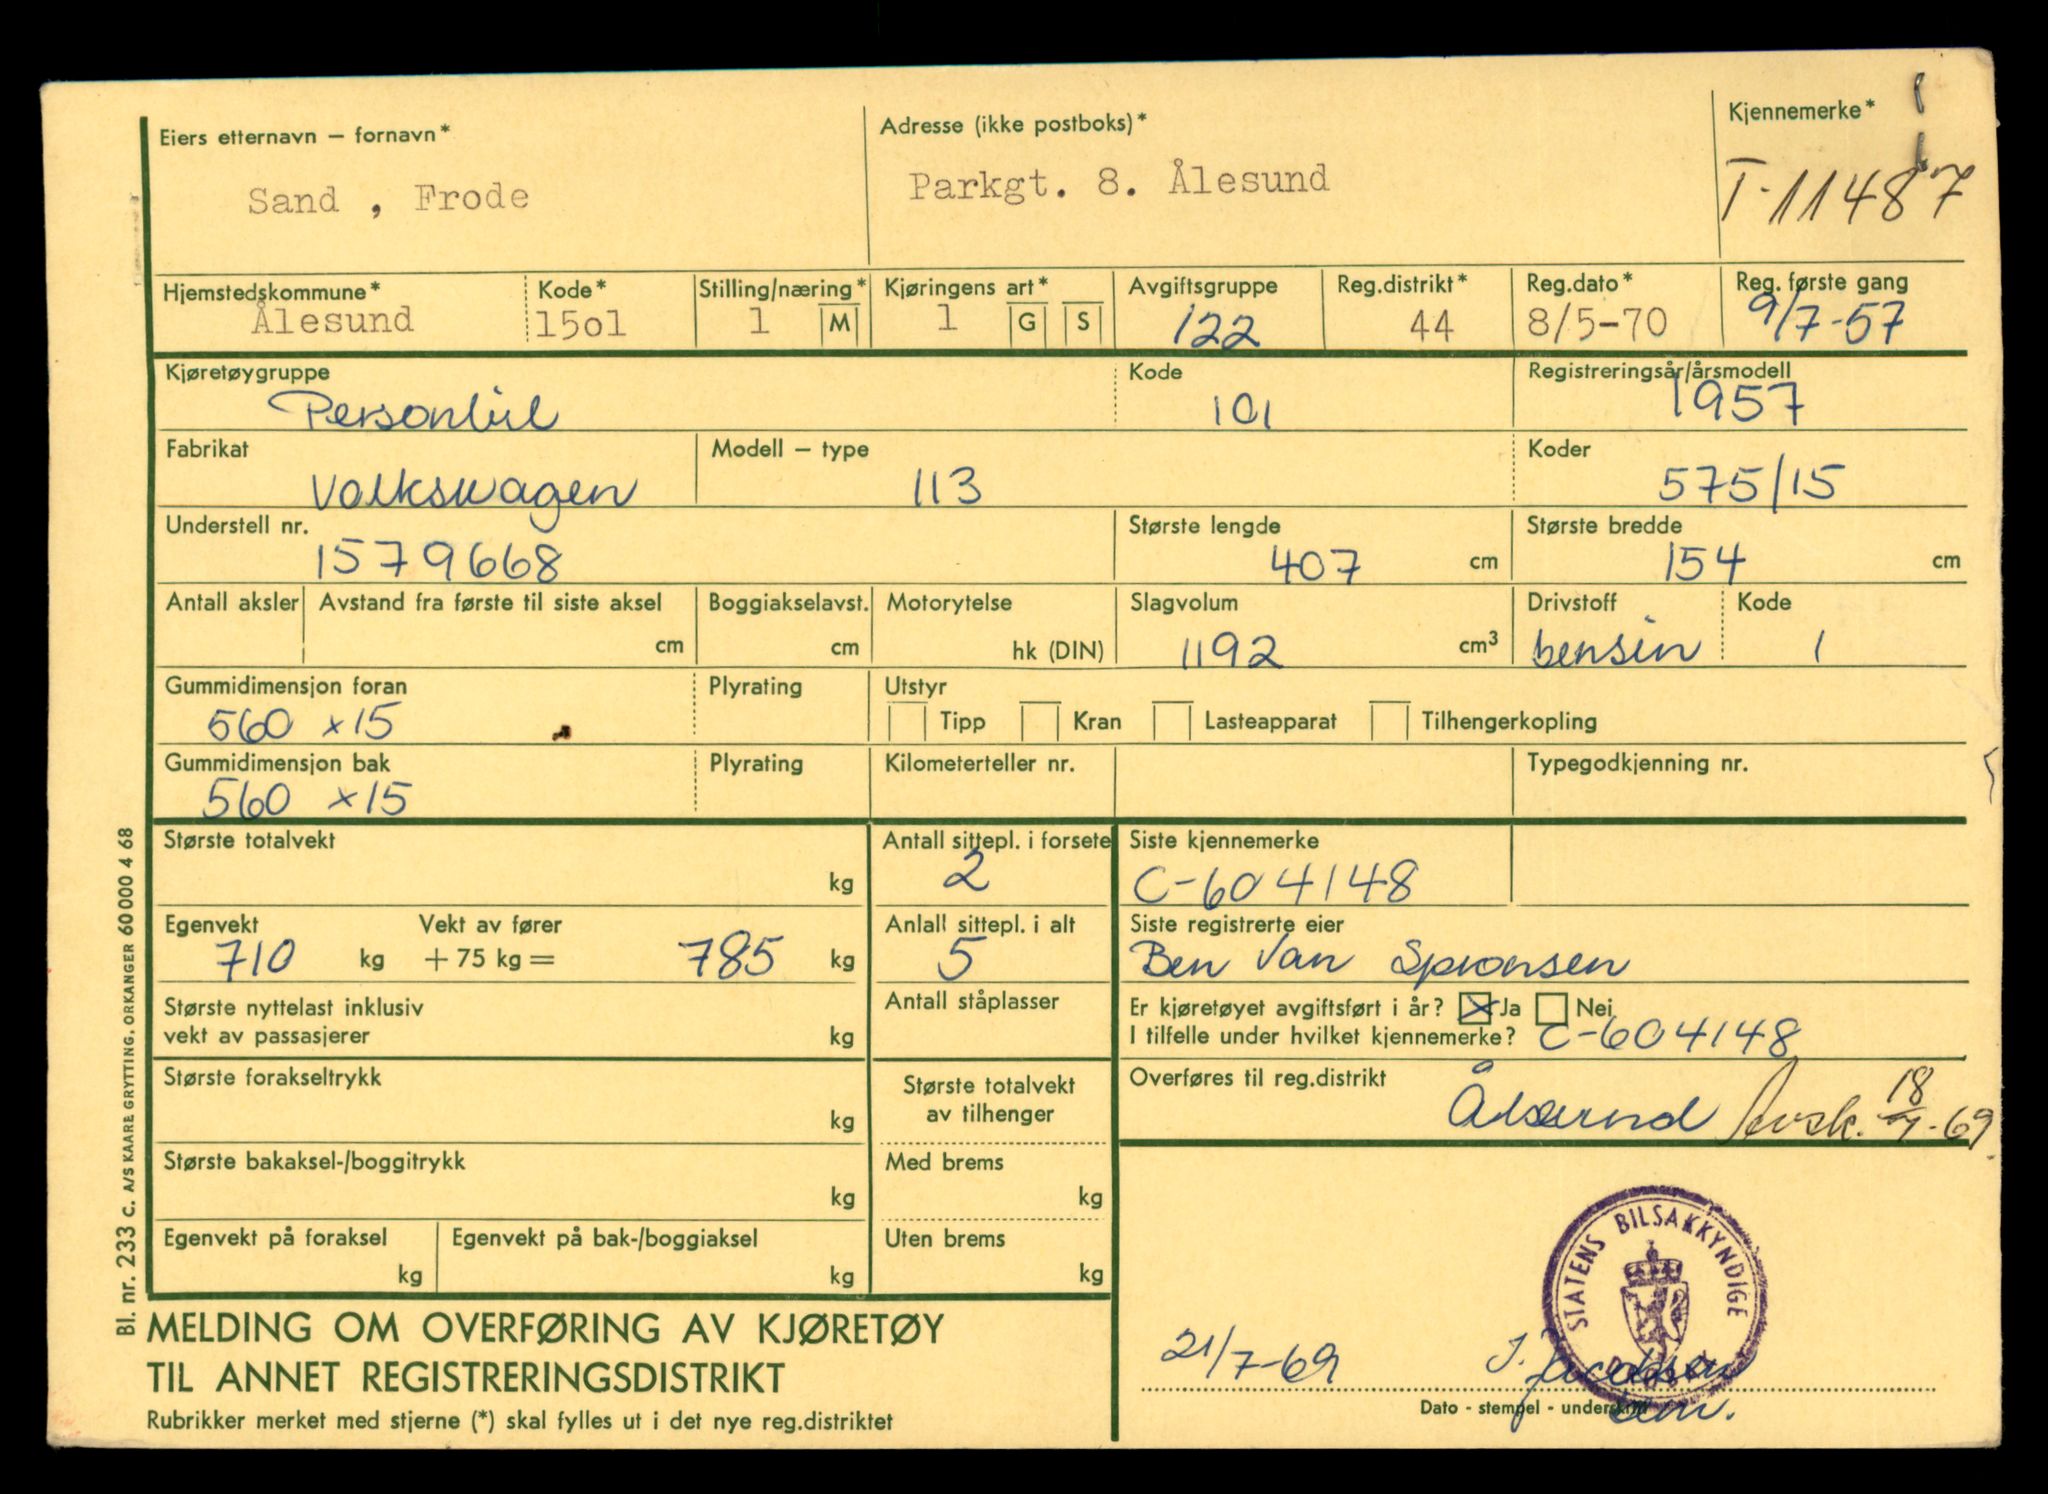 Eiers etternavn — fornavn*
Sand , Frode
Adresse (ikke postboks)*
Parkgt. 8. Ålesund
Kjennemerke*
T-11487
Hjemstedskommune*
Ålesund
Kode*
15o1
Stilling/næring*
1 M
Kjøringens art*
1 G S
Avgiftsgruppe
122
Reg.distrikt*
44
Reg.dato*
8/5-70
Reg. første gang
9/7-57
Kjøretøygruppe
Personbil
Kode
101
Registreringsår/årsmodell
1957
Fabrikat
Volkswagen
Modell — type
113
Koder
575/15
Understell nr.
1579668
Største lengde
407 cm
Største bredde
154 cm
Antall aksler
Avstand fra første til siste aksel
cm
Boggiakselavst.
cm
Motorytelse
hk (DIN)
Slagvolum
1192 cm3
Drivstoff
bensin
Kode
1
Gummidimensjon foran
560 x15
Plyrating
Utstyr
Tipp Kran Lasteapparat Tilhengerkopling
Gummidimensjon bak
560 x15
Plyrating
Kilometerteller nr.
Typegodkjenning nr.
Største totalvekt
kg
Antall sittepl. i forsete
2
Siste kjennemerke
C-604148
Egenvekt
710 kg
Vekt av fører
+ 75 kg = 785 kg
Anlall sittepl. i alt
5
Siste registrerte eier
Ben Van Spronsen
Største nyttelast inklusiv
vekt av passasjerer
kg
Antall ståplasser
Er kjøretøyet avgiftsført i år? Ja Nei
I tilfelle under hvilket kjennemerke? C-604148
Største forakseltrykk
kg
Største totalvekt
av tilhenger
Overføres til reg.distrikt
Ålesund Avsk. 18/7-69
Største bakaksel-/boggitrykk
kg
Med brems
kg
Egenvekt på foraksel
kg
Egenvekt på bak-/boggiaksel
kg
Uten brems
kg
STATENS BILSAKKYNDIGE
21/7-69 J. Jacobsen
Dato - stempel - underskrift
MELDING OM OVERFØRING AV KJØRETØY
TIL ANNET REGISTRERINGSDISTRIKT
Rubrikker merket med stjerne (*) skal fylles ut i det nye reg.distriktet
Bl. nr. 233 c. A/S KAARE GRYTTING. ORKANGER 60000 4 68